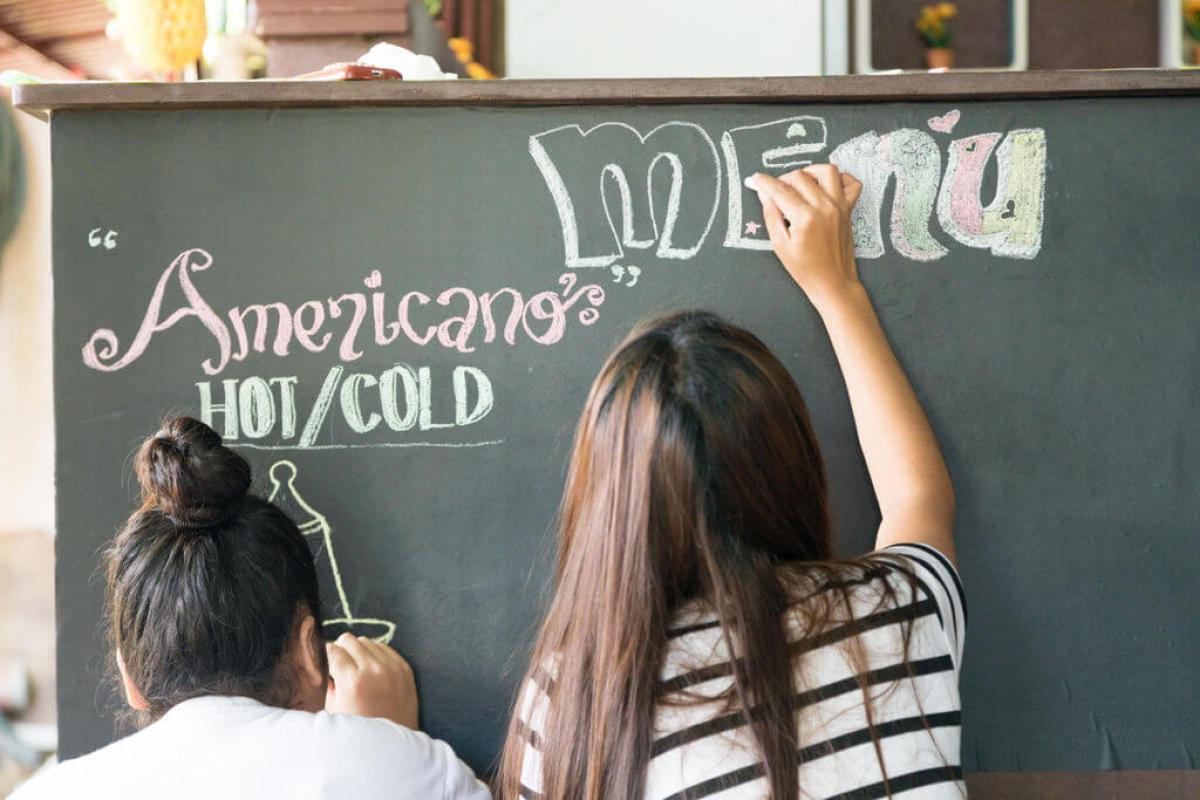 menu
“Americano's”
HOT/COLD